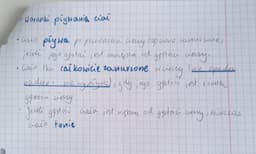 Warunki pływania ciał
• Ciało pływa po powierzchni wody częściowo zanurzone,
jeżeli jego gęstość jest mniejsza od gęstości wody.
• Ciało całkowicie zanurzone w wodzie
gdy jego gęstość jest równa
gęstości wody.
• Jeżeli gęstość ciała jest większa od gęstości wody, wówczas
ciało tonie